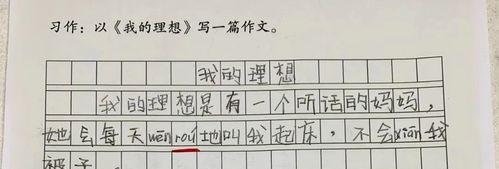 习作：以《我的理想》写一篇作文。
我的理想
我的理想是有一个听话的妈妈，
她会每天wēnroú地叫我起床，不会xiān我
被子